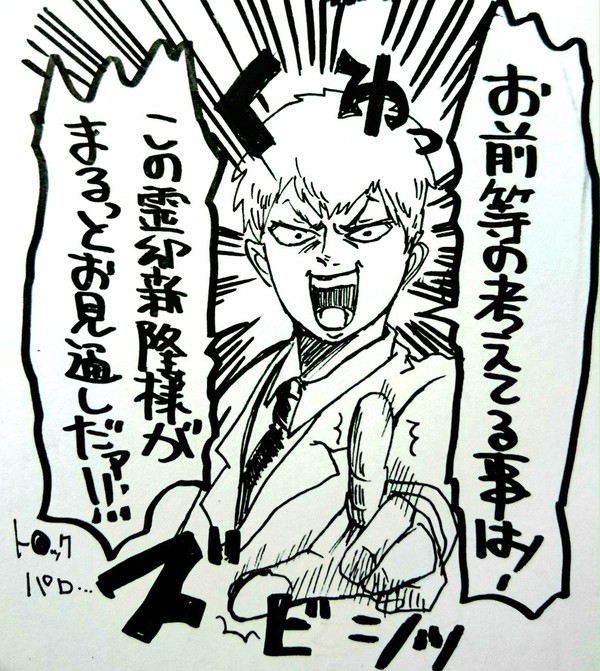 お前等の考えてる事はッ!
この霊幻新隆様が
まるっとお見通しだァ!!!
くわっ
ズビシッ
ト●ック
パロ…